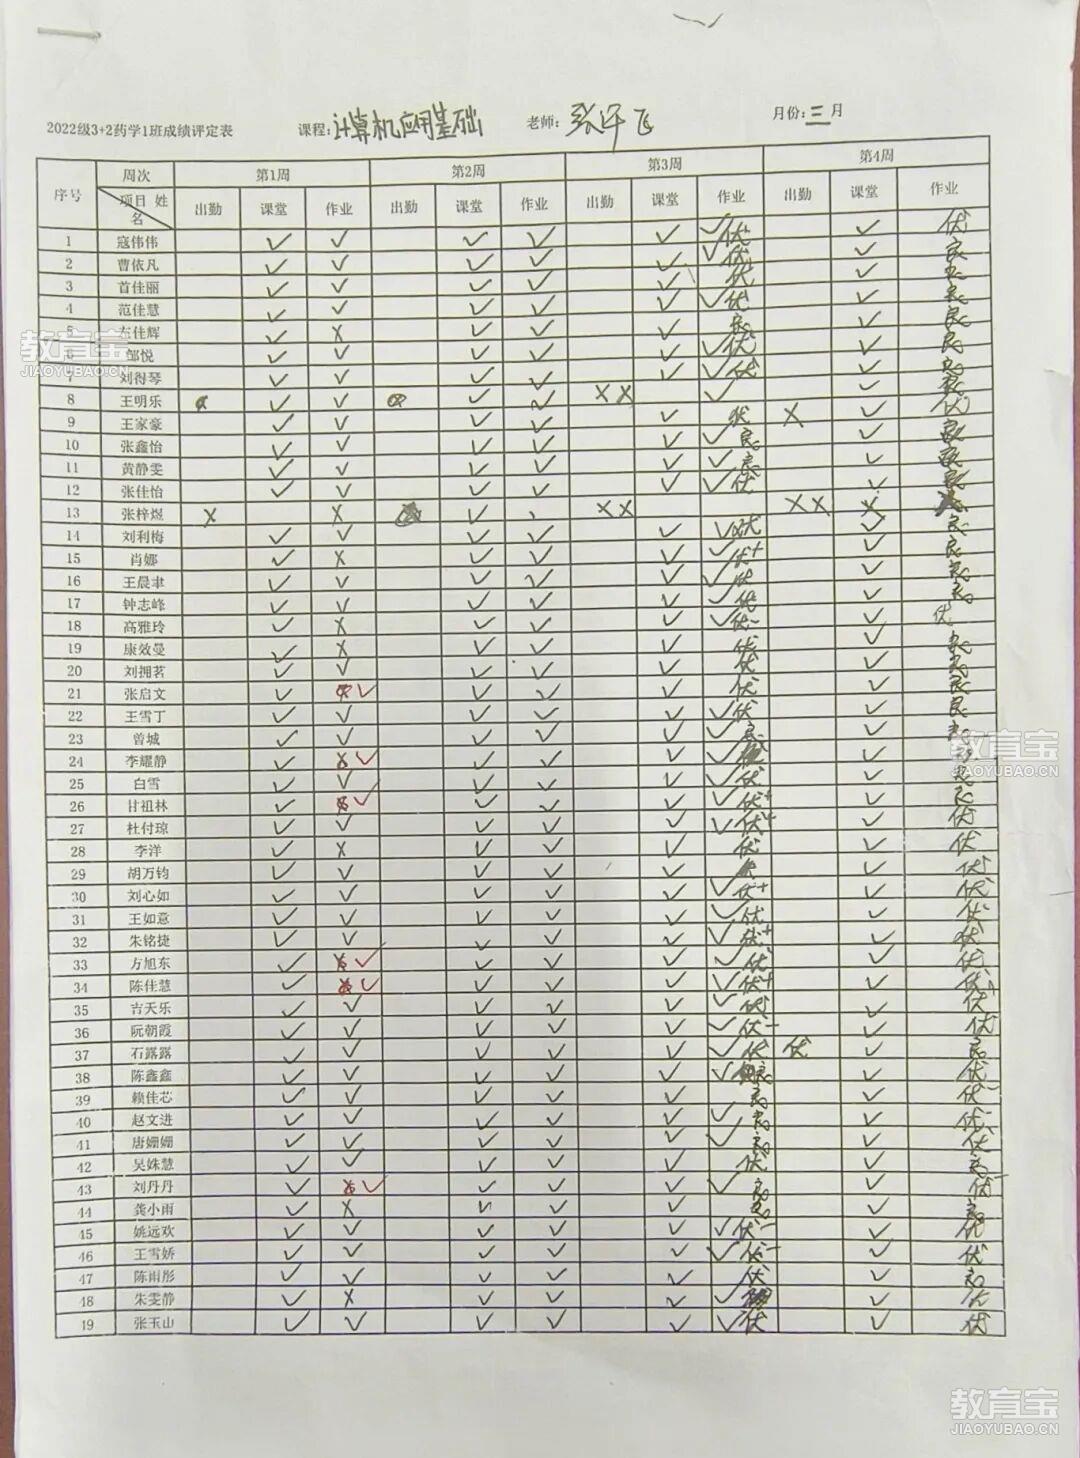 2022级3+2药学1班成绩评定表 课程:计算机应用基础 老师: 月份:三月
周次 第1周 第2周 第3周 第4周
序号 项目 姓名 出勤 课堂 作业 出勤 课堂 作业 出勤 课堂 作业 出勤 课堂 作业
1 寇伟伟 ✓ ✓ ✓ ✓ ✓ ✓优 ✓ 优
2 曹依凡 ✓ ✓ ✓ ✓ ✓ ✓优 ✓ 良
3 首佳丽 ✓ ✓ ✓ ✓ ✓ 优 ✓
4 范佳慧 ✓ ✓ ✓ ✓ ✓ ✓优 ✓ 良
5 左佳辉 ✓ X ✓ ✓ ✓ 良 ✓ 良
6 邹悦 ✓ ✓ ✓ ✓ ✓ ✓优 ✓ 良
7 刘得琴 ✓ ✓ ✓ ✓ ✓ ✓优 ✓
8 王明乐 ✓ ✓ ✓ ✓ XX ✓
9 王家豪 ✓ ✓ ✓ ✓ ✓ 优 X ✓
10 张鑫怡 ✓ ✓ ✓ ✓ ✓ ✓良 ✓ 良
11 黄静雯 ✓ ✓ ✓ ✓ ✓ ✓良 ✓
12 张佳怡 ✓ ✓ ✓ ✓ ✓ ✓优 ✓ 良
13 张梓煜 X X ✓ XX XX X
14 刘利梅 ✓ ✓ ✓ ✓ ✓ ✓优 ✓ 良
15 肖娜 ✓ X ✓ ✓ ✓ ✓优+ ✓ 良
16 王晨聿 ✓ ✓ ✓ ✓ ✓ ✓优 ✓ 良
17 钟志峰 ✓ ✓ ✓ ✓ ✓ ✓优 ✓ 良
18 高雅玲 ✓ X ✓ ✓ ✓ ✓优- ✓ 优
19 康效曼 ✓ X ✓ ✓ ✓ 优 ✓ 良
20 刘拥茗 ✓ ✓ ✓ ✓ ✓ 优 ✓ 良
21 张启文 ✓ ✓ ✓ ✓ ✓ 优 ✓ 良
22 王雪丁 ✓ ✓ ✓ ✓ ✓ ✓优 ✓ 良
23 曾城 ✓ ✓ ✓ ✓ ✓ ✓良 ✓ 良
24 李耀静 ✓ X✓ ✓ ✓ ✓ ✓ ✓
25 白雪 ✓ ✓ ✓ ✓ ✓ ✓优 ✓ 良
26 甘祖林 ✓ X✓ ✓ ✓ ✓ ✓优+ ✓ 良
27 杜付琼 ✓ ✓ ✓ ✓ ✓ ✓优+ ✓ 优
28 李洋 ✓ X ✓ ✓ ✓ 优 ✓ 优
29 胡万钧 ✓ ✓ ✓ ✓ ✓ ✓ 优
30 刘心如 ✓ ✓ ✓ ✓ ✓ ✓优+ ✓ 优
31 王如意 ✓ ✓ ✓ ✓ ✓ ✓优 ✓ 优
32 朱铭捷 ✓ ✓ ✓ ✓ ✓ ✓优+ ✓ 优
33 方旭东 ✓ X✓ ✓ ✓ ✓ ✓优 ✓ 优
34 陈佳慧 ✓ X✓ ✓ ✓ ✓ ✓优+ ✓ 优+
35 吉天乐 ✓ ✓ ✓ ✓ ✓ ✓优 ✓ 优
36 阮朝霞 ✓ ✓ ✓ ✓ ✓ ✓优- ✓ 优
37 石露露 ✓ ✓ ✓ ✓ ✓ ✓优 优 ✓ 良
38 陈鑫鑫 ✓ ✓ ✓ ✓ ✓ ✓良 ✓ 优
39 赖佳芯 ✓ ✓ ✓ ✓ ✓ 良 ✓ 优-
40 赵文进 ✓ ✓ ✓ ✓ ✓ ✓良 ✓ 优-
41 唐姗姗 ✓ ✓ ✓ ✓ ✓ ✓良 ✓ 优
42 吴姝慧 ✓ ✓ ✓ ✓ ✓ 优 ✓ 良
43 刘丹丹 ✓ X✓ ✓ ✓ ✓ ✓良 ✓ 优-
44 龚小雨 ✓ X ✓ ✓ ✓ 良 ✓ 良
45 姚远欢 ✓ ✓ ✓ ✓ ✓ ✓优- ✓ 优
46 王雪娇 ✓ ✓ ✓ ✓ ✓ ✓优- ✓ 优
47 陈雨彤 ✓ ✓ ✓ ✓ ✓ 优 ✓ 良
48 朱雯静 ✓ X ✓ ✓ ✓ ✓ ✓ 优
49 张玉山 ✓ ✓ ✓ ✓ ✓ ✓优 ✓ 优
教育宝
JIAOYUBAO.CN
教育宝
JIAOYUBAO.CN
教育宝
JIAOYUBAO.CN